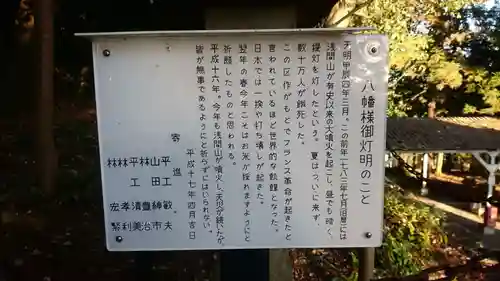 八幡様御灯明のこと
天明甲辰四年三月。この前年一七八三年七月旧暦には
浅間山が有史以来の大噴火を起こし、昼でも暗く、
提灯を灯したという。夏はついに来ず、
数十万人が餓死した。
この凶作がもとでフランス革命が起きたと
言われているほど世界的な飢饉となった。
日本では一揆や打ち壊しが起きた。
翌年の春今年こそはお米が採れますようにと
祈願したものと思われる。
平成十六年。今年も浅間山が噴火し、天災が続いたが、
皆が無事であるようにと祈らずにはいられない。
平成十七年四月吉日
寄進
平山 觀夫
工田 紳治
山工 清
林 豊美
平 孝市
林 宏利
林 繁